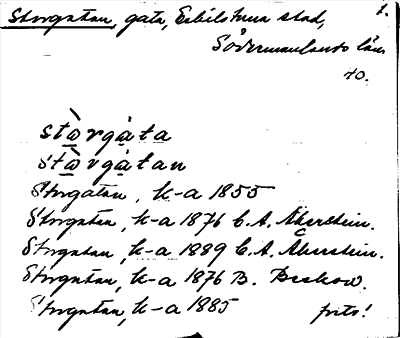 Storgatan, gata, Eskilstuna stad, 1.
Södermanlands län.
40.
stò̱rgá̱ta
stò̱rgá̱tan
Storgatan, k-a 1855
Storgatan, k-a 1876 C. A. Åkerstein.
Storgatan, k-a 1889 C. A. Åkerstein.
Storgatan, k-a 1876 B. Beskow.
Storgatan, k-a 1885 forts!